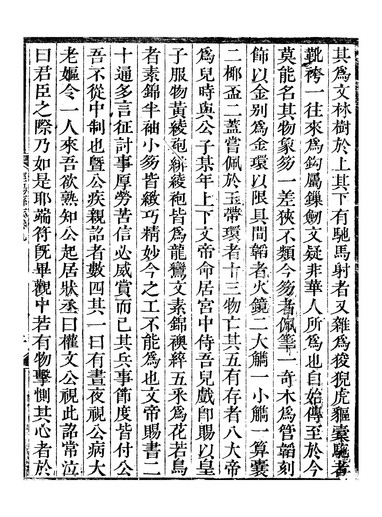 其爲文林樹於上其下有馳馬射者又雜爲狻猊虎軀橐馳者
靴袴一往來爲鉤屬鏁劒文疑非華人所爲也自始傳至於今
莫能名其物象笏一差狹不類今笏者佩筆一奇木爲管韜刻
飾以金别爲金環以限其間韜者火鏡二大觿一小觿一算囊
二椰盃二蓋嘗佩於玉帶環者十三物亡其五有存者八大帝
爲兒時與公子某年上下文帝命居宮中侍吾兒戲卽賜以皇
子服物黃綾袍緋綾袍皆爲龍鸞文素錦襖綷五采爲花若鳥
者素錦半袖小笏皆緻巧精妙今之工不能爲也文帝賜書二
十通多言征討事厚勞苦信必威賞而已其兵事節度皆付公
吾不從中制也曁公疾親詔者數四其一曰有晝夜視公病大
老嫗令一人來吾欲熟知公起居狀丞曰權文公視此詔常泣
曰君臣之際乃如是耶端符旣畢觀中若有物擊惻其心者於